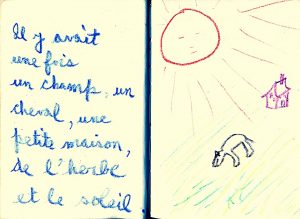 Il y avait
une fois
un champ, un
cheval, une
petite maison,
de l'herbe
et le soleil.